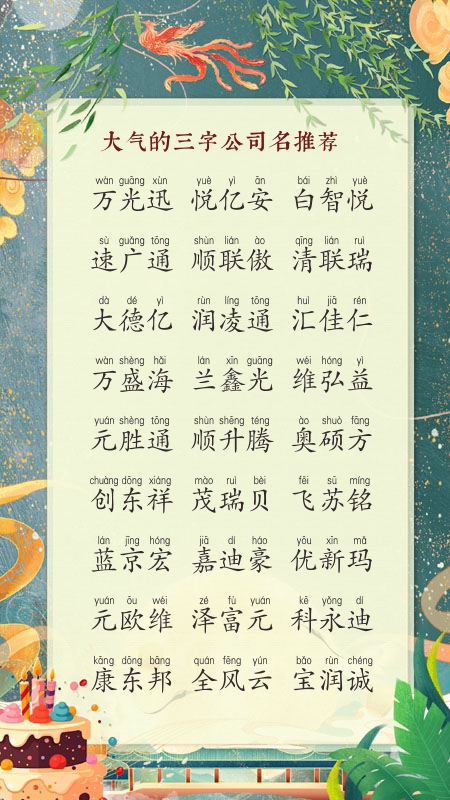 大气的三字公司名推荐
wàn guāng xùn yuè yì ān bái zhì yuè
万光迅 悦亿安 白智悦
sù guǎng tōng shùn lián ào qīng lián ruì
速广通 顺联傲 清联瑞
dà dé yì rùn líng tōng huì jiā rén
大德亿 润凌通 汇佳仁
wàn shèng hǎi lán xīn guāng wéi hóng yì
万盛海 兰鑫光 维弘益
yuán shèng tōng shùn shēng téng ào shuò fāng
元胜通 顺升腾 奥硕方
chuàng dōng xiáng mào ruì bèi fēi sū míng
创东祥 茂瑞贝 飞苏铭
lán jīng hóng jiā dí háo yōu xīn mǎ
蓝京宏 嘉迪豪 优新玛
yuán ōu wéi zé fù yuán kē yǒng dí
元欧维 泽富元 科永迪
kāng dōng bāng quán fēng yún bǎo rùn chéng
康东邦 全风云 宝润诚